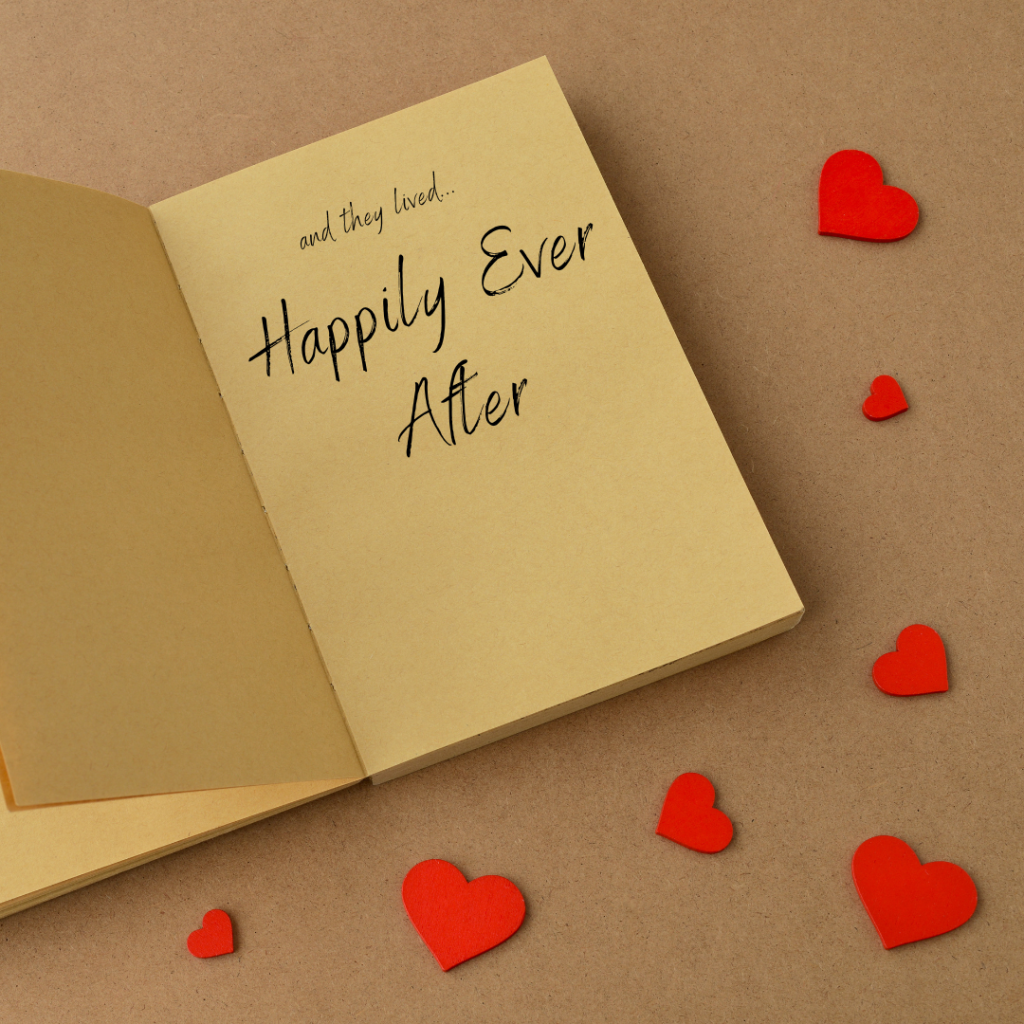 and they lived...
Happily Ever
After